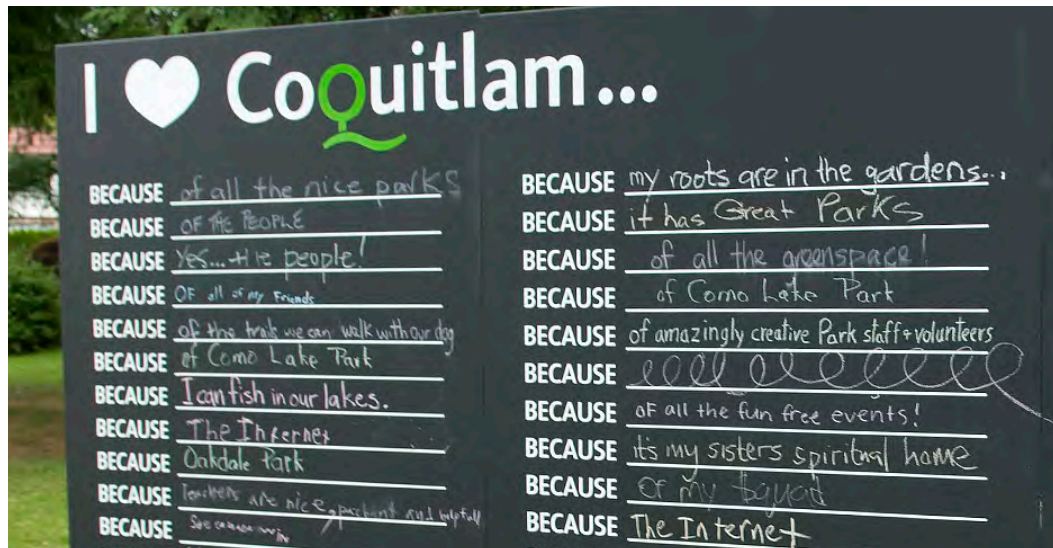 I ♥ Coquitlam...
BECAUSE of all the nice parks
BECAUSE OF THE PEOPLE
BECAUSE Yes... the people!
BECAUSE OF all of my Friends
BECAUSE of the trails we can walk with our dog
BECAUSE of Como Lake Park
BECAUSE I can fish in our lakes.
BECAUSE The Internet
BECAUSE Oakdale Park
BECAUSE Teachers are nice, and helpfull
BECAUSE
BECAUSE my roots are in the gardens...
BECAUSE it has Great Parks
BECAUSE of all the greenspace!
BECAUSE of Como Lake Park
BECAUSE of amazingly creative Park staff + volunteers
BECAUSE
BECAUSE OF all the fun free events!
BECAUSE it's my sisters spiritual home
BECAUSE of my squad
BECAUSE The Internet